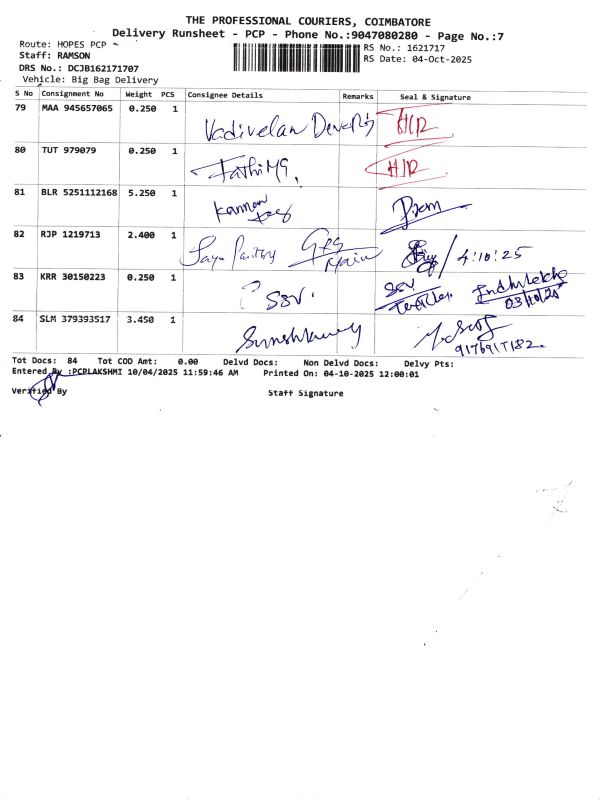 THE PROFESSIONAL COURIERS, COIMBATORE
Delivery Runsheet - PCP - Phone No.:9047080280 - Page No.:7
Route: HOPES PCP
RS No.: 1621717
Staff: RAMSON
RS Date: 04-Oct-2025
DRS No.: DCJB162171707
Vehicle: Big Bag Delivery
S No Consignment No Weight PCS Consignee Details Remarks Seal & Signature
79 MAA 945657065 0.250 1 Vadivelan
80 TUT 979079 0.250 1
81 BLR 5251112168 5.250 1 Kannan Prem
82 RJP 1219713 2.400 1 4:10:25
83 KRR 30150223 0.250 1 SSV.
03/10/25
84 SLM 379393517 3.450 1
Tot Docs: 84 Tot COD Amt: 0.00 Delvd Docs: Non Delvd Docs: Delvy Pts:
Entered By :PCPLAKSHMI 10/04/2025 11:59:46 AM Printed On: 04-10-2025 12:00:01
Verified By Staff Signature